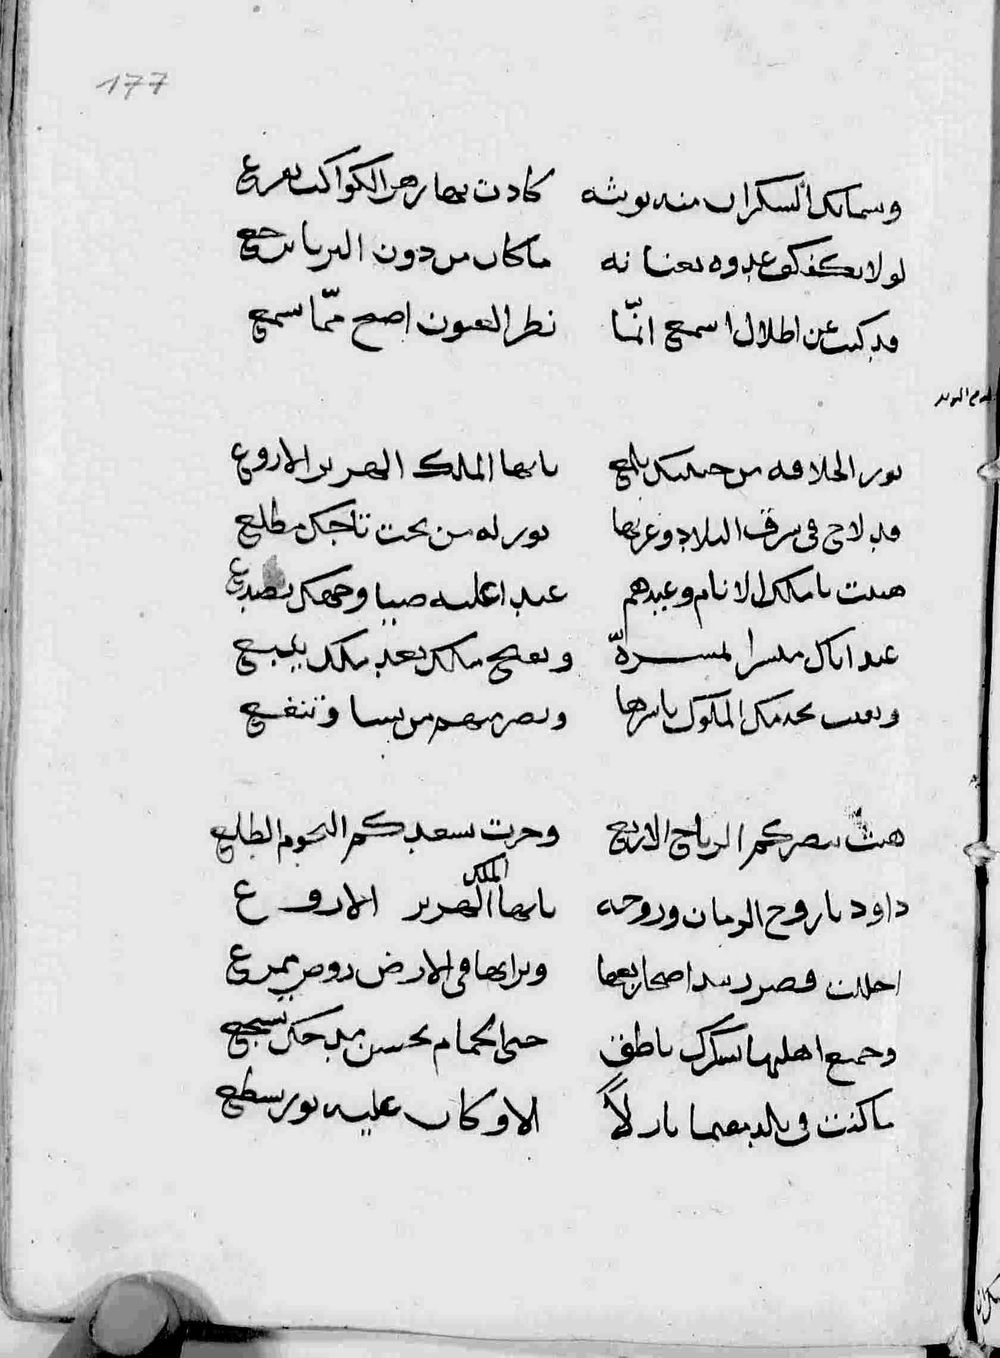 177
وسماتك السكران منه نوشه كادت بها زهر الكواكب تفرع
لولا تكفكف غيره بعنانه ما كان من دون الثريا يرجع
قد كنت عن اطلال اسمع انّما نظر العيون اصح ممّا تسمع
نور الخلافه من جبينك يلمع يا ايها الملك الهزبر الاروع
قد لاح فى شرق البلاد وغربها نور له من تحت تاجك مطلع
هنيت يا ملك الانام وعيدهم عيد اعليه ضيا وجهك يصدع
عيد اتاك مبشرا بمسرةّ وبفتح ملك بعد ملك يتبع
وتعيب بخدمتك الملوك باسرها وتضر منهم من تشا وتنفع
هبت بنصركم الرياح الاربع وجرت بسعدكم النجوم الطلع
داود يا روح الزمان وروحه يا ايها الملك الهزبر الاروع
احللت قصر ربعها وترابها فى الارض روض ممرع
وجميع اهليها بشكرك ناطق حتى الحمام بحسن مدحك تسجع
ما كنت فى بلد مقيما نازلاً الا وكان عليه نور يسطع